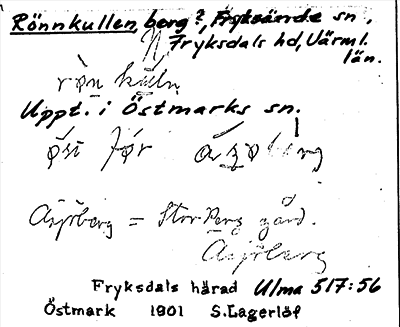 Rönnkullen, berg?, Fryksände sn.
Fryksdals hd, Värml.
län.
Uppt. i Östmarks sn.
Asjöberg = Stor Berg gård.
Asjöberg
Fryksdals härad Ulma 517:56
Östmark 1901 S.Lagerlöf